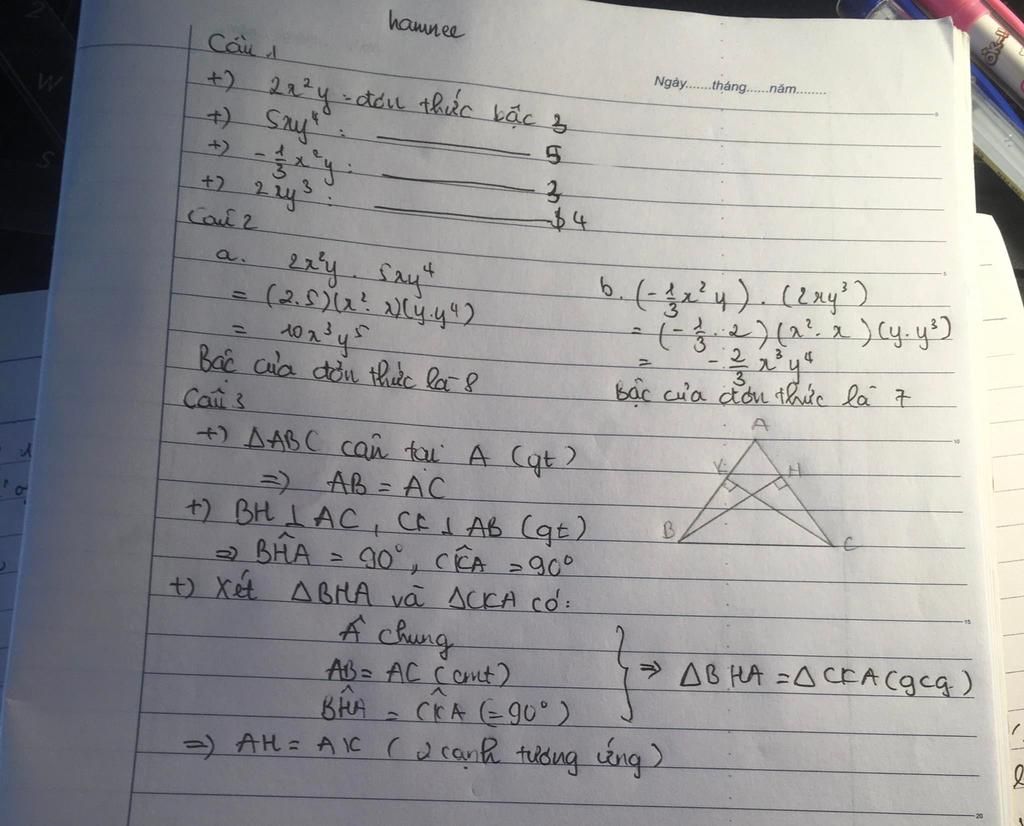 hamnee
Ngày.......tháng......năm........
Câu 1
+) 2x²y = đơn thức bậc 3
+) 5xy⁴ : ———— 5
+) -1/3 x²y : ———— 3
+) 2xy³ : ———— 4
Câu 2
a. 2x²y . 5xy⁴
= (2.5)(x².x)(y.y⁴)
= 10x³y⁵
Bậc của đơn thức là 8
b. (-1/3 x²y) . (2xy³)
= (-1/3 . 2)(x².x)(y.y³)
= -2/3 x³y⁴
Bậc của đơn thức là 7
Câu 3
+) ΔABC cân tại A (gt)
=> AB = AC
+) BH ⊥ AC, CK ⊥ AB (gt)
=> BĤA = 90°, CK̂A = 90°
+) Xét ΔBHA và ΔCKA có:
Â chung
AB = AC (cmt)
BĤA = CK̂A (=90°)
} => ΔBHA = ΔCKA (gcg)
=> AH = AK (2 cạnh tương ứng)
A
K H
B C
5
10
15
20